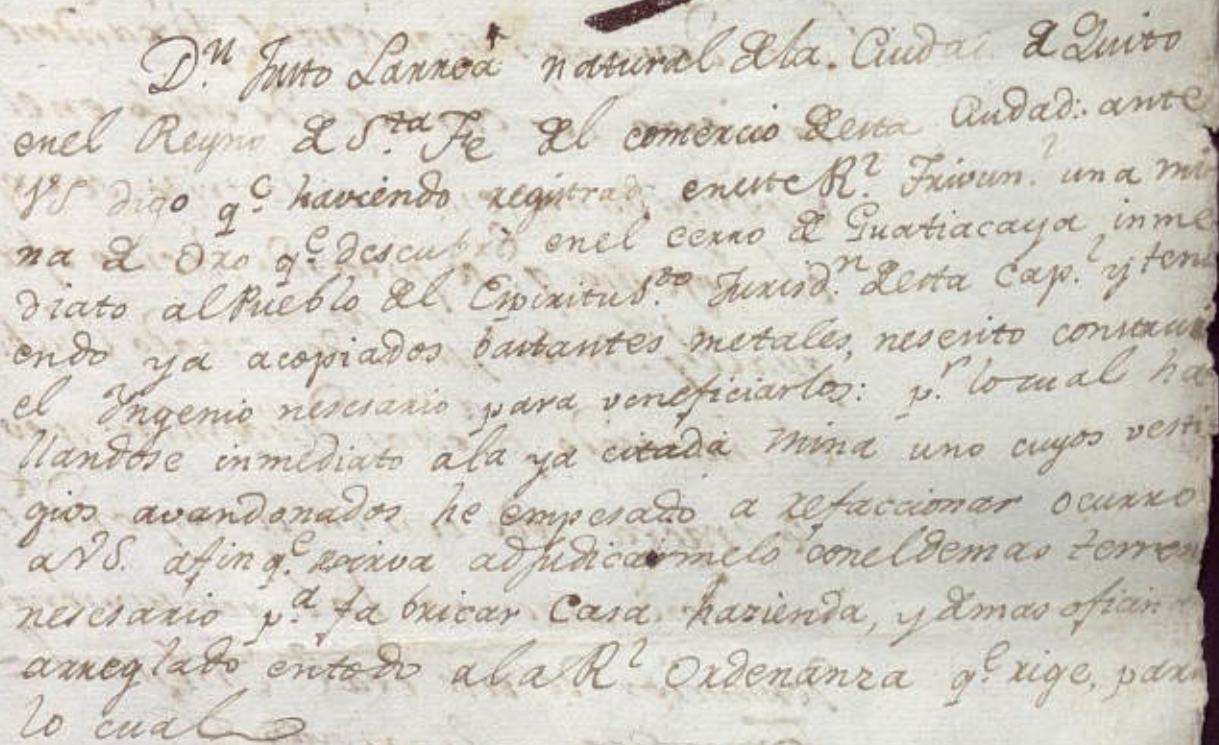 D.n Justo Larrea natural de la Ciudad de Quito
en el Reyno de S.ta Fe del comercio desta Ciudad: ante
VS digo q.e haviendo registrado en este R.l Trivun.l una mi
na de Oro q.e descubrí en el cerro de Guatiacaya inme
diato al Pueblo del Espiritu S.to Jurisd.n desta Cap.l y teni
endo ya acopiados bastantes metales, nesesito construir
el Ingenio nesesario para veneficiarlos: p.r lo cual ha
llandose inmediato a la ya citada Mina uno cuyos vesti
gios avandonados he empesado a refaccionar ocurro
a VS. a fin q.e se sirva adjudicarmelo con el demas terreno
nesesario p.a fabricar Casa hazienda, y demas oficinas
arreglado en todo a la R.l Ordenanza q.e rige, para
lo cual